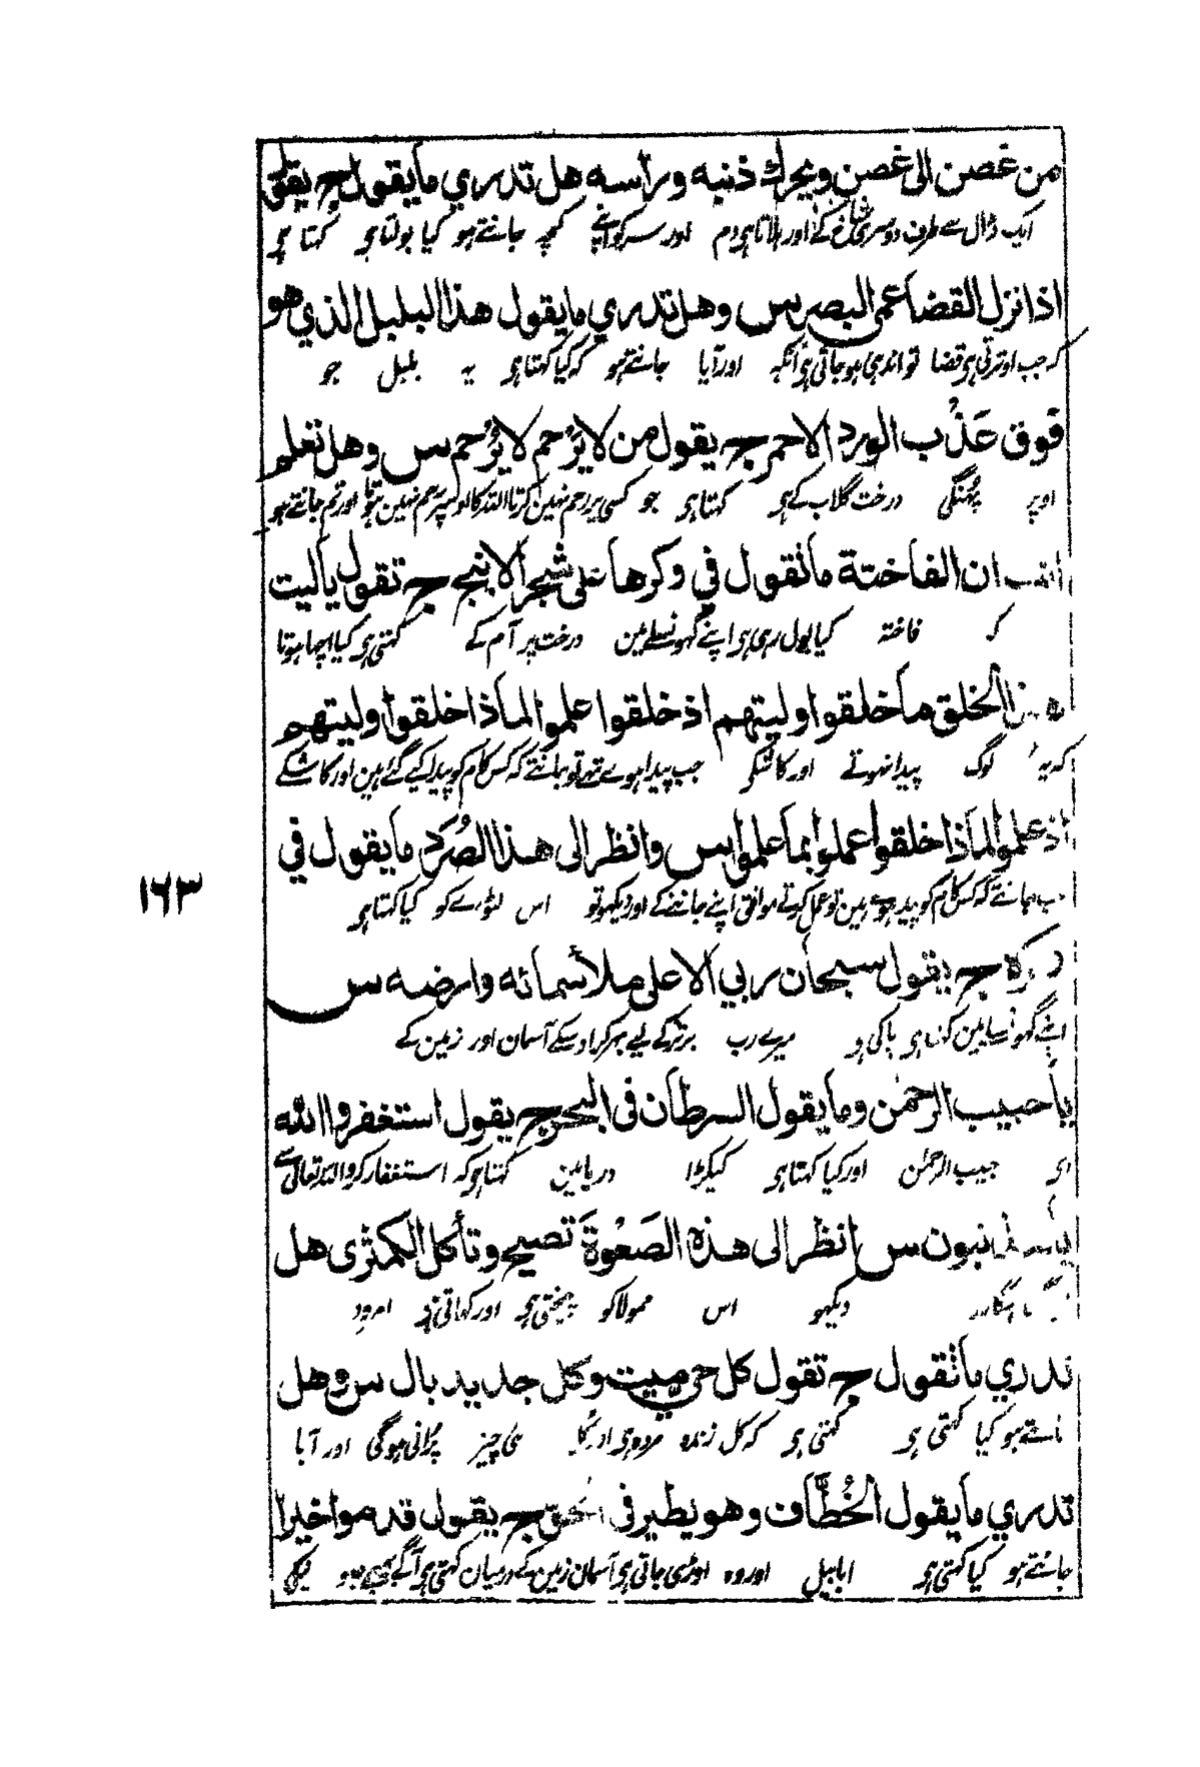 من غصن الى غصن ويحرك ذنبه ورأسه هل تدري ما يقول ج يقول
ایک ڈال سے طرف دوسری شاخ کے اور ہلاتا ہی دم اور سر کو اپنے کچھ جانتے ہو کیا بولتا ہی کہتا ہی
اذا نزل القضا عمي البصر س وهل تدري ما يقول هذا البلبل الذي هو
کہ جب اوترتی ہی قضا تو اندھی ہو جاتی ہی آنکہہ اور آیا جانتے ہو کہ کیا کہتا ہی یہ بلبل جو
فوق عَذْب الورد الاحمر ج يقول من لا يَرْحم لا يُرْحم س وهل تعلم
اوپر پُہنگی درخت گلاب کے ہی کہتا ہی جو کسی پر رحم نہین کرتا اللہ کا اوسپر رحم نہین ہوتا اور تم جانتے ہو
ان الفاختة ما تقول في وكرها على شجر الانبج ج تقول يا ليت
کہ فاختہ کیا بول رہی ہی اپنے گہونسلے مین درخت پر آم کے کہتی ہی کیا اچہا ہوتا
هذا الخلق ما خلقوا وليتهم اذ خلقوا علموا لماذا خلقوا وليتهم
کہ یہ لوگ پیدا نہوتے اور کاشکے جب پیدا ہوے تہے تو جانتے کہ کس کام کو پیدا کیے گئے ہین اور کاشکے
اذ علموا لماذا خلقوا عملوا بما علموا س وانظر الى هذا الصُرَد ما يقول في
جب جانتے کہ کس کام کو پیدا ہوے ہین تو عمل کرتے موافق اپنے جاننے کے اور دیکہو تو اس لٹورے کو کیا کہتا ہی
وكره ج يقول سبحان ربي الاعلى ملأ سمائه وارضه س
اپنے گہونسلے مین کہتا ہی پاکی ہی میرے رب برتر کے لیے بہر کر اوسکے آسمان اور زمین کے
يا حبيب الرحمٰن وما يقول السرطان في البحر ج يقول استغفروا الله
ای حبیب الرحمٰن اور کیا کہتا ہی کیکڑا دریا مین کہتا ہی کہ استغفار کرو اللہ تعالی سے
يا مذنبون س انظر الى هذه الصَعْوة تصيح وتأكل الكمثرى هل
دیکہو اس ممولا کو چیختی ہی اور کہاتی ہی امرود
تدري ما تقول ج تقول كل حي ميت وكل جديد بال س وهل
جانتے ہو کیا کہتی ہی کہتی ہی کہ کل زندہ مردہ ہی اور کل نئی چیز پرانی ہوگی اور آیا
تدري ما يقول الخُطَّاف وهو يطير في الجو ج يقول قدموا خيرا
جانتے ہو کیا کہتی ہی ابابیل اور وہ اوڑی جاتی ہی آسمان زمین کے درمیان کہتی ہی آگے بہیجو نیکی
١٦٣